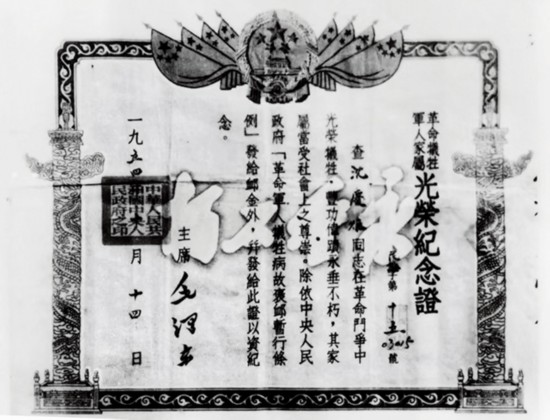 革命犧牲
軍人家屬
光榮紀念證
字第十五03015號
查沈慶同志在革命鬥爭中
光榮犧牲，豐功偉蹟永垂不朽，其家
屬當受社會上之尊崇。除依中央人民
政府「革命軍人犧牲病故褒卹暫行條
例」發給卹金外，并發給此證以資紀
念。
主席 毛澤東
一九五四 月十四日
中華人民共
和國中央人
民政府之印